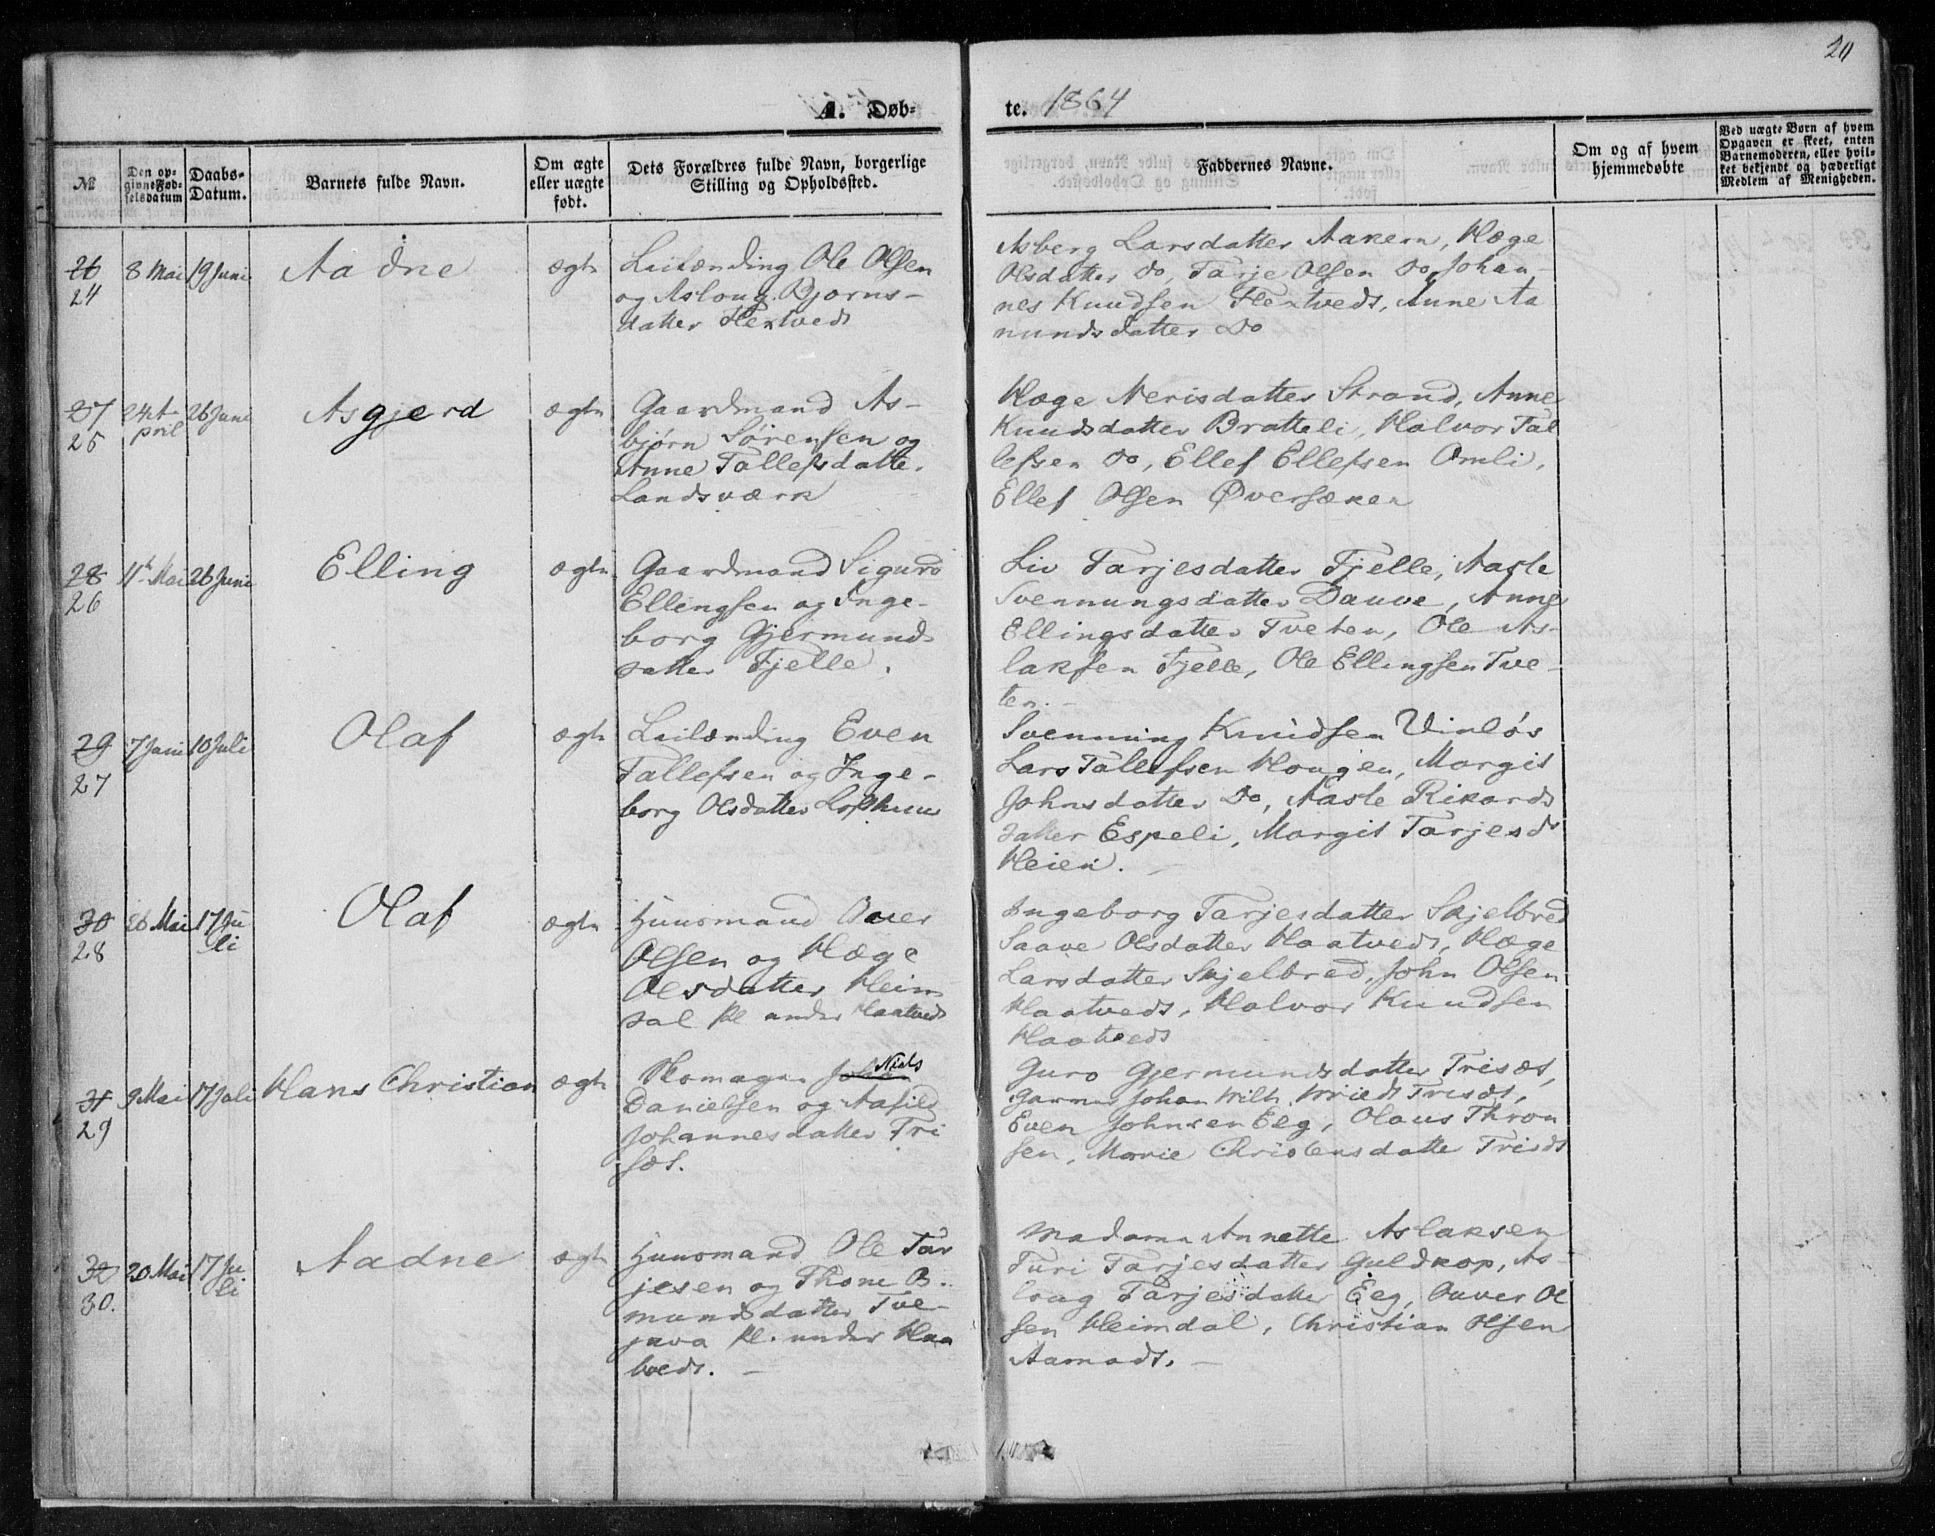 20
A. Døb-
te. 1864
№
Den op-
givne Fød-
selsdatum
Daabs-
Datum.
Barnets fulde Navn.
Om ægte
eller uægte
født.
Dets Forældres fulde Navn, borgerlige
Stilling og Opholdssted.
Faddernes Navne.
Om og af hvem
hjemmedøbte
Ved uægte Børn af hvem
Opgaven er skeet, enten
Barnemoderen, eller hvil-
ket bekjendt og hæderligt
Medlem af Menigheden.
26
24
8 Mai
19 Juni
Aadne
ægte
Leilænding Ole Olsen
og Asloug Bjørns-
datter Flextveds
Asberg Larsdatter Aakern, Hæge
Olsdatter do, Tarje Olsen do, Johan-
nes Knudsen Flextveds, Anne Aa
nundsdatter Do
27
25
24 A-
pril
26 Juni
Asgjerd
ægte
Gaardmand As-
bjørn Sørensen og
Anne Tallefsdatter
Landsværk
Hæge Nerisdatter Strand, Anne
Knudsdatter Bratteli, Halvor Tal
lefsen do, Ellef Ellefsen Omli,
Ellef Olsen Øversæker
28
26
11te Mai
26 Juni
Elling
ægte
Gaardmand Sigurd
Ellingsen og Inge-
borg Gjermunds
datter Fjelle.
Liv Tarjesdatter Fjelle, Aasle
Svennungsdatter Dauve, Anne
Ellingsdatter Tveten, Ole As-
laksen Fjelle, Ole Ellingsen Tve-
ten.-
29
27
7 Juni
10 Juli
Olaf
ægte
Leilænding Even
Tallefsen og Inge-
borg Olsdatter Lofthuus
Svenning Knudsen Vinløs
Lars Tallefsen Hougen, Margit
Johnsdatter do, Aasle Rikards
datter Espeli, Margit Tarjesd
Heien.
30
28
26 Mai
17 Ju
li
Olaf
ægte
Huusmand Over
Olsen og Hæge
Olsdatter Heim
dal Pl under Haatveds
Ingeborg Tarjesdatter Skjelbred
Saave Olsdatter Haatveds, Hæge
Larsdatter Skjelbred, John Olsen
Haatveds, Halvor Knudsen
Haatveds
31
29
9 Mai
17 Juli
Hans Christian
ægte
Skomager John Niels
Danielsen og Aasild
Johannesdatter Tri
sæt.
Guro Gjermundsdatter Trisæt,
Garmer Johan Wilh. Wriedt Trisæt,
Even Johnsen Eeg, Olaus Thron
sen, Marie Christensdatter Trisæt
32
30.
20 Mai
17 Ju
li
Aadne
ægte
Huusmand Ole Tar
jesen og Thone B.
mundsdatter Tve-
java Pl. under Haa
tveds.-
Madame Annette Aslaksen
Turi Tarjesdatter Guldkop, As-
loug Tarjesdatter Eeg, Ouver Ol
sen Heimdal, Christian Olsen
Aamods.-